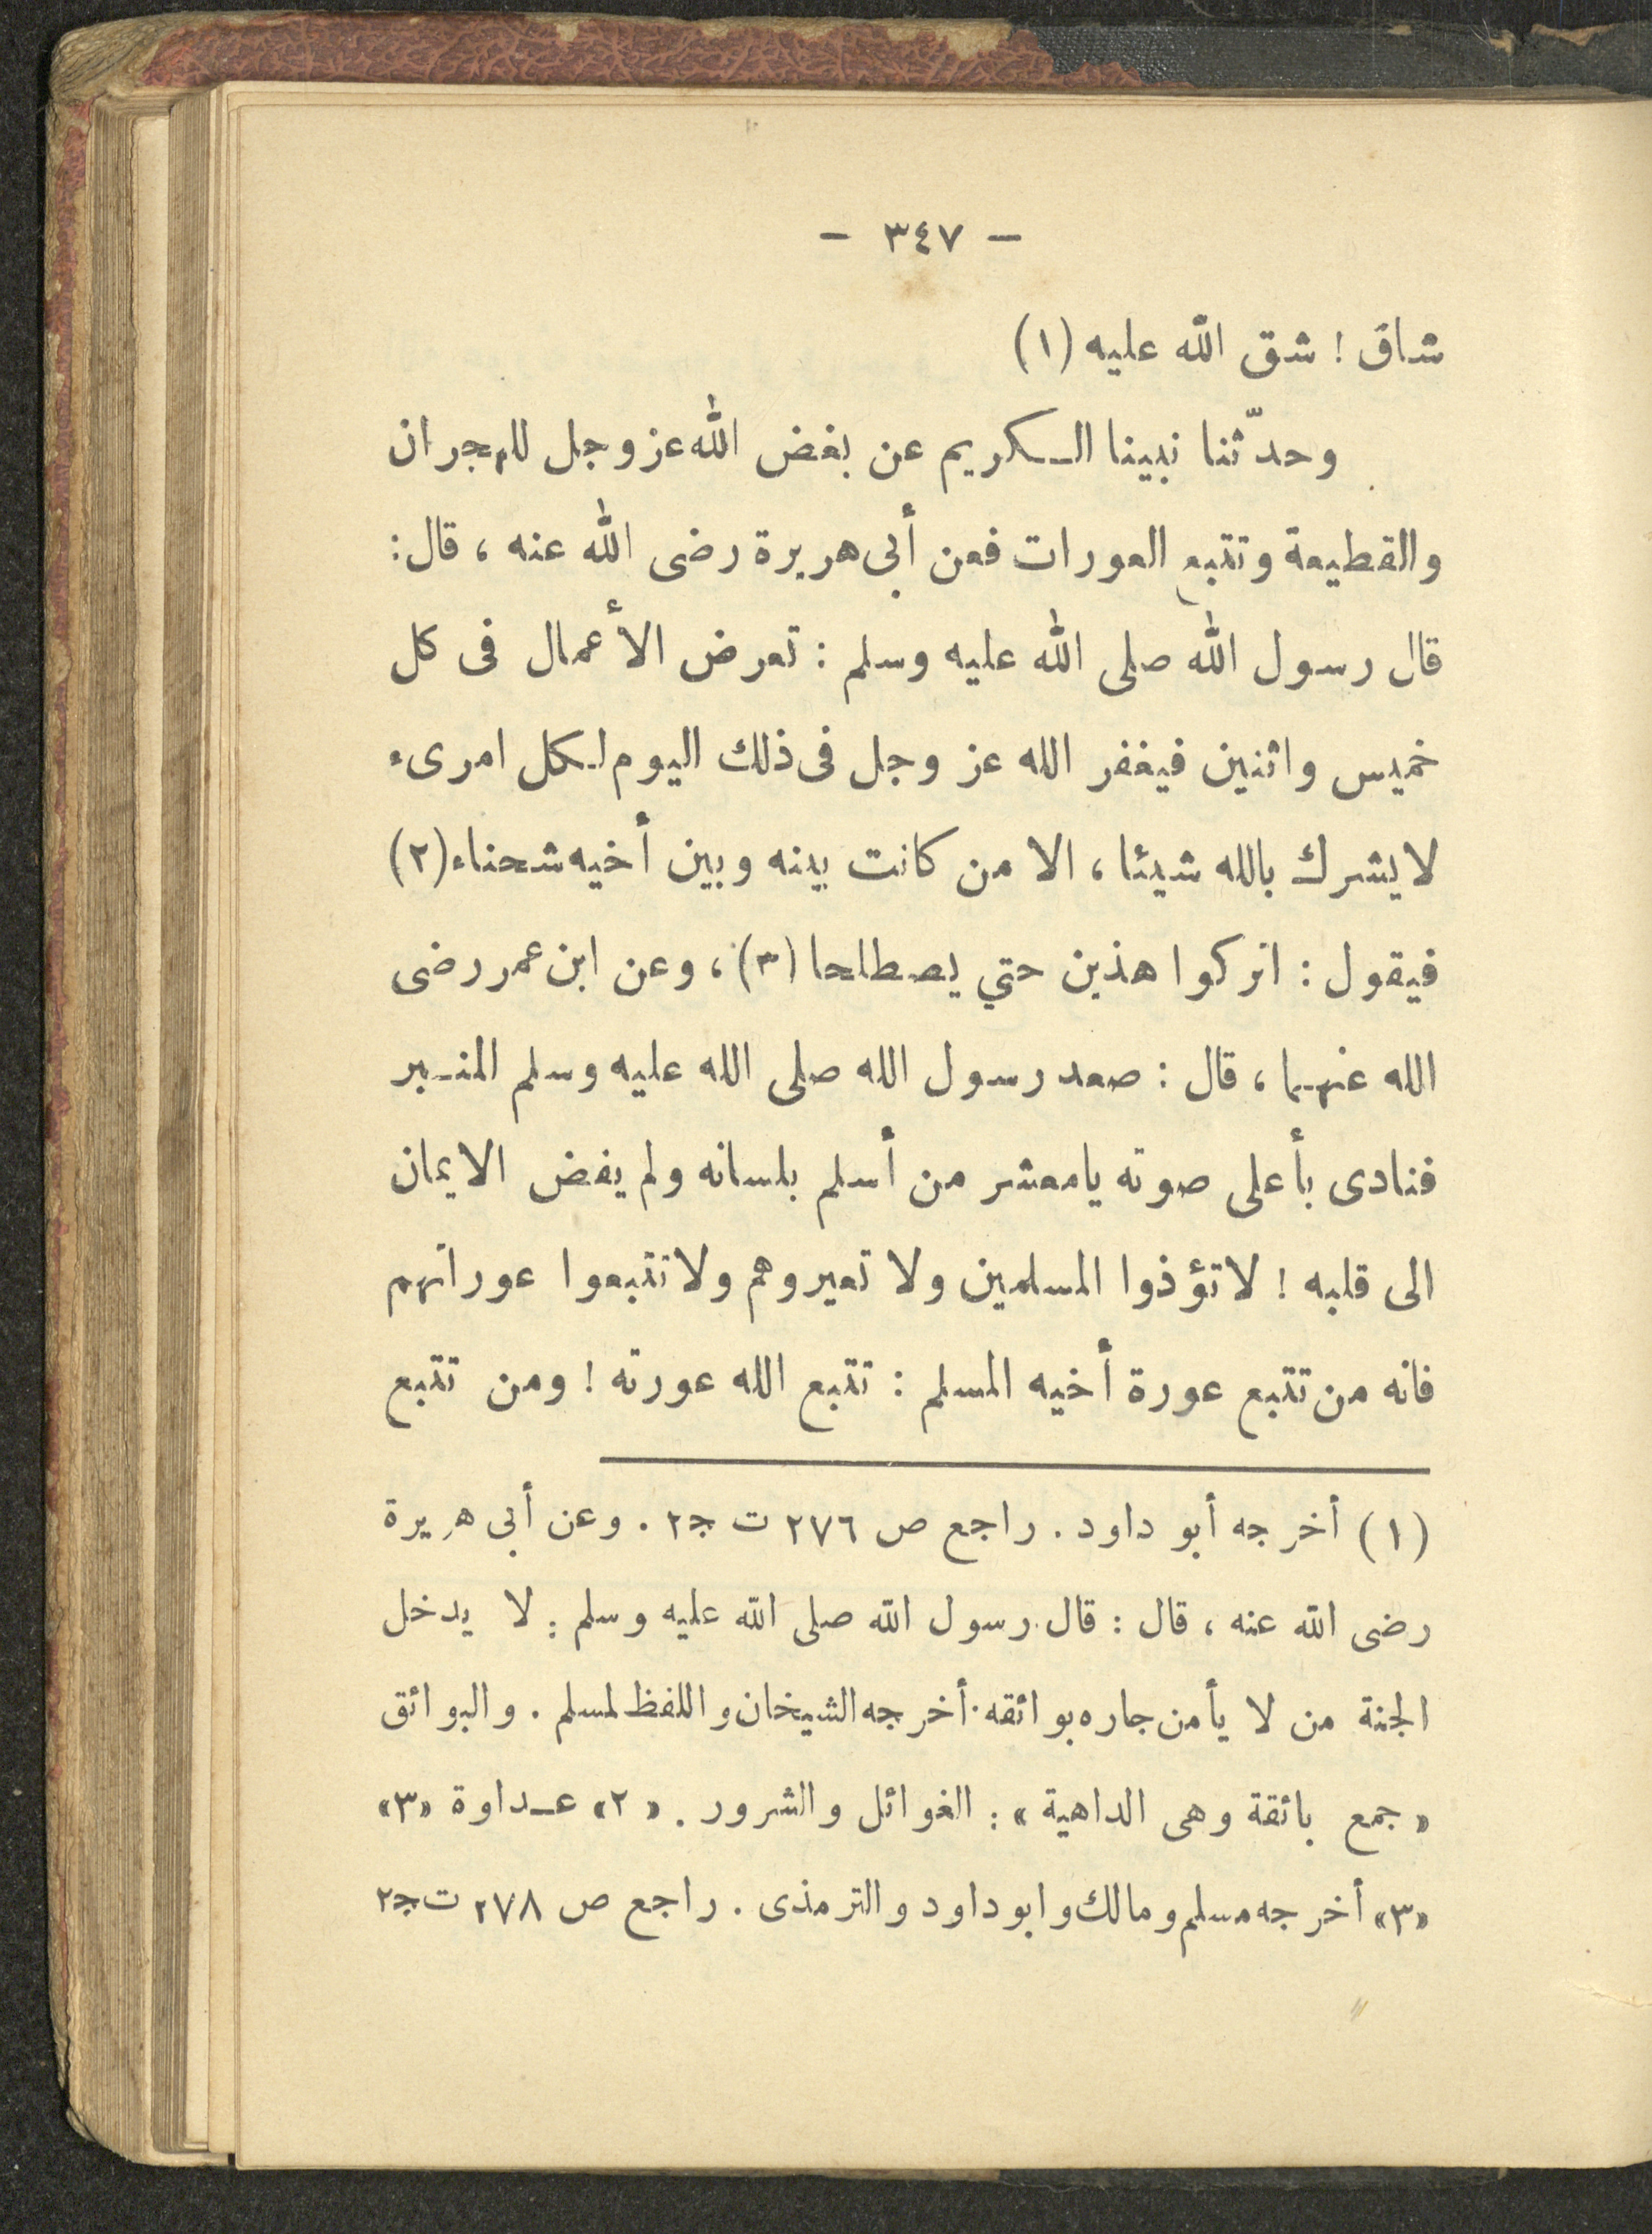 – ٣٤٧ –
شاق ! شق الله عليه (١)
وحدّثنا نبينا الكريم عن بغض الله عز وجل للهجران
والقطيعة وتتبع العورات فعن أبى هريرة رضى الله عنه ، قال :
قال رسول الله صلى الله عليه وسلم : تعرض الأعمال فى كل
خميس واثنين فيغفر الله عز وجل فى ذلك اليوم لكل امرىء
لا يشرك بالله شيئا ، الا من كانت بينه وبين أخيه شحناء (٢)
فيقول : اتركوا هذين حتي يصطلحا (٣) ، وعن ابن عمر رضى
الله عنهما ، قال : صعد رسول الله صلى الله عليه وسلم المنبر
فنادى بأعلى صوته يامعشر من أسلم بلسانه ولم يفض الايمان
الى قلبه ! لا تؤذوا المسلمين ولا تعيروهم ولا تتبعوا عوراتهم
فانه من تتبع عورة أخيه المسلم : تتبع الله عورته ! ومن تتبع
(١) أخرجه أبو داود . راجع ص ٢٧٦ ت ج٢ . وعن أبى هريرة
رضى الله عنه ، قال : قال رسول الله صلى الله عليه وسلم : لا يدخل
الجنة من لا يأمن جاره بوائقه . أخرجه الشيخان واللفظ لمسلم . والبوائق
« جمع بائقة وهى الداهية » : الغوائل والشرور . «٢» عداوة «٣»
«٣» أخرجه مسلم ومالك وابو داود والترمذى . راجع ص ٢٧٨ ت ج٢